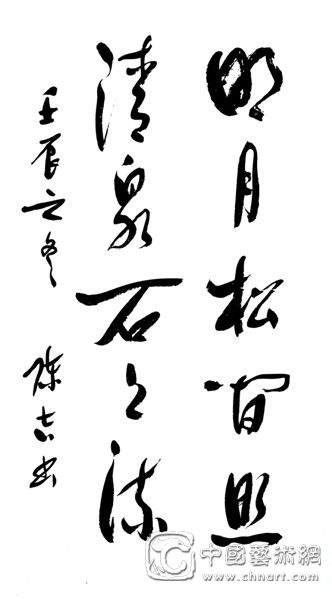 明月松间照
清泉石上流
壬辰之冬 陈吉书
中國藝術網
www.chnart.com